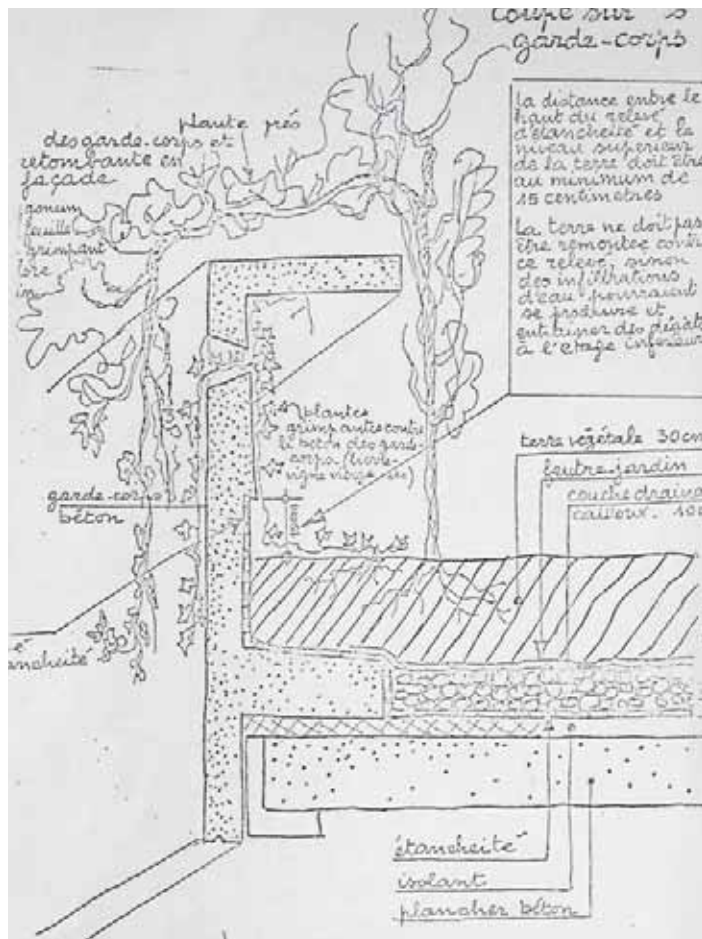 coupe sur s
garde-corps
la distance entre le
haut du relevé
d'étanchéité et le
niveau supérieur
de la terre doit être
au minimum de
15 centimètres
La terre ne doit pas
être remontée contr
ce relevé, sinon
des infiltrations
d'eau pourraient
se produire et
entrainer des dégats
à l'étage inférieur
plante près
des garde-corps et
retombante en
façade
feuille
grimpant
plantes
grimpantes contre
le béton des garde
corps (lierre
vigne vierge etc)
garde-corps
béton
terre végétale 30cm
feutre-jardin
couche draina
cailloux. 10c
ancheité
étancheité
isolant
plancher béton